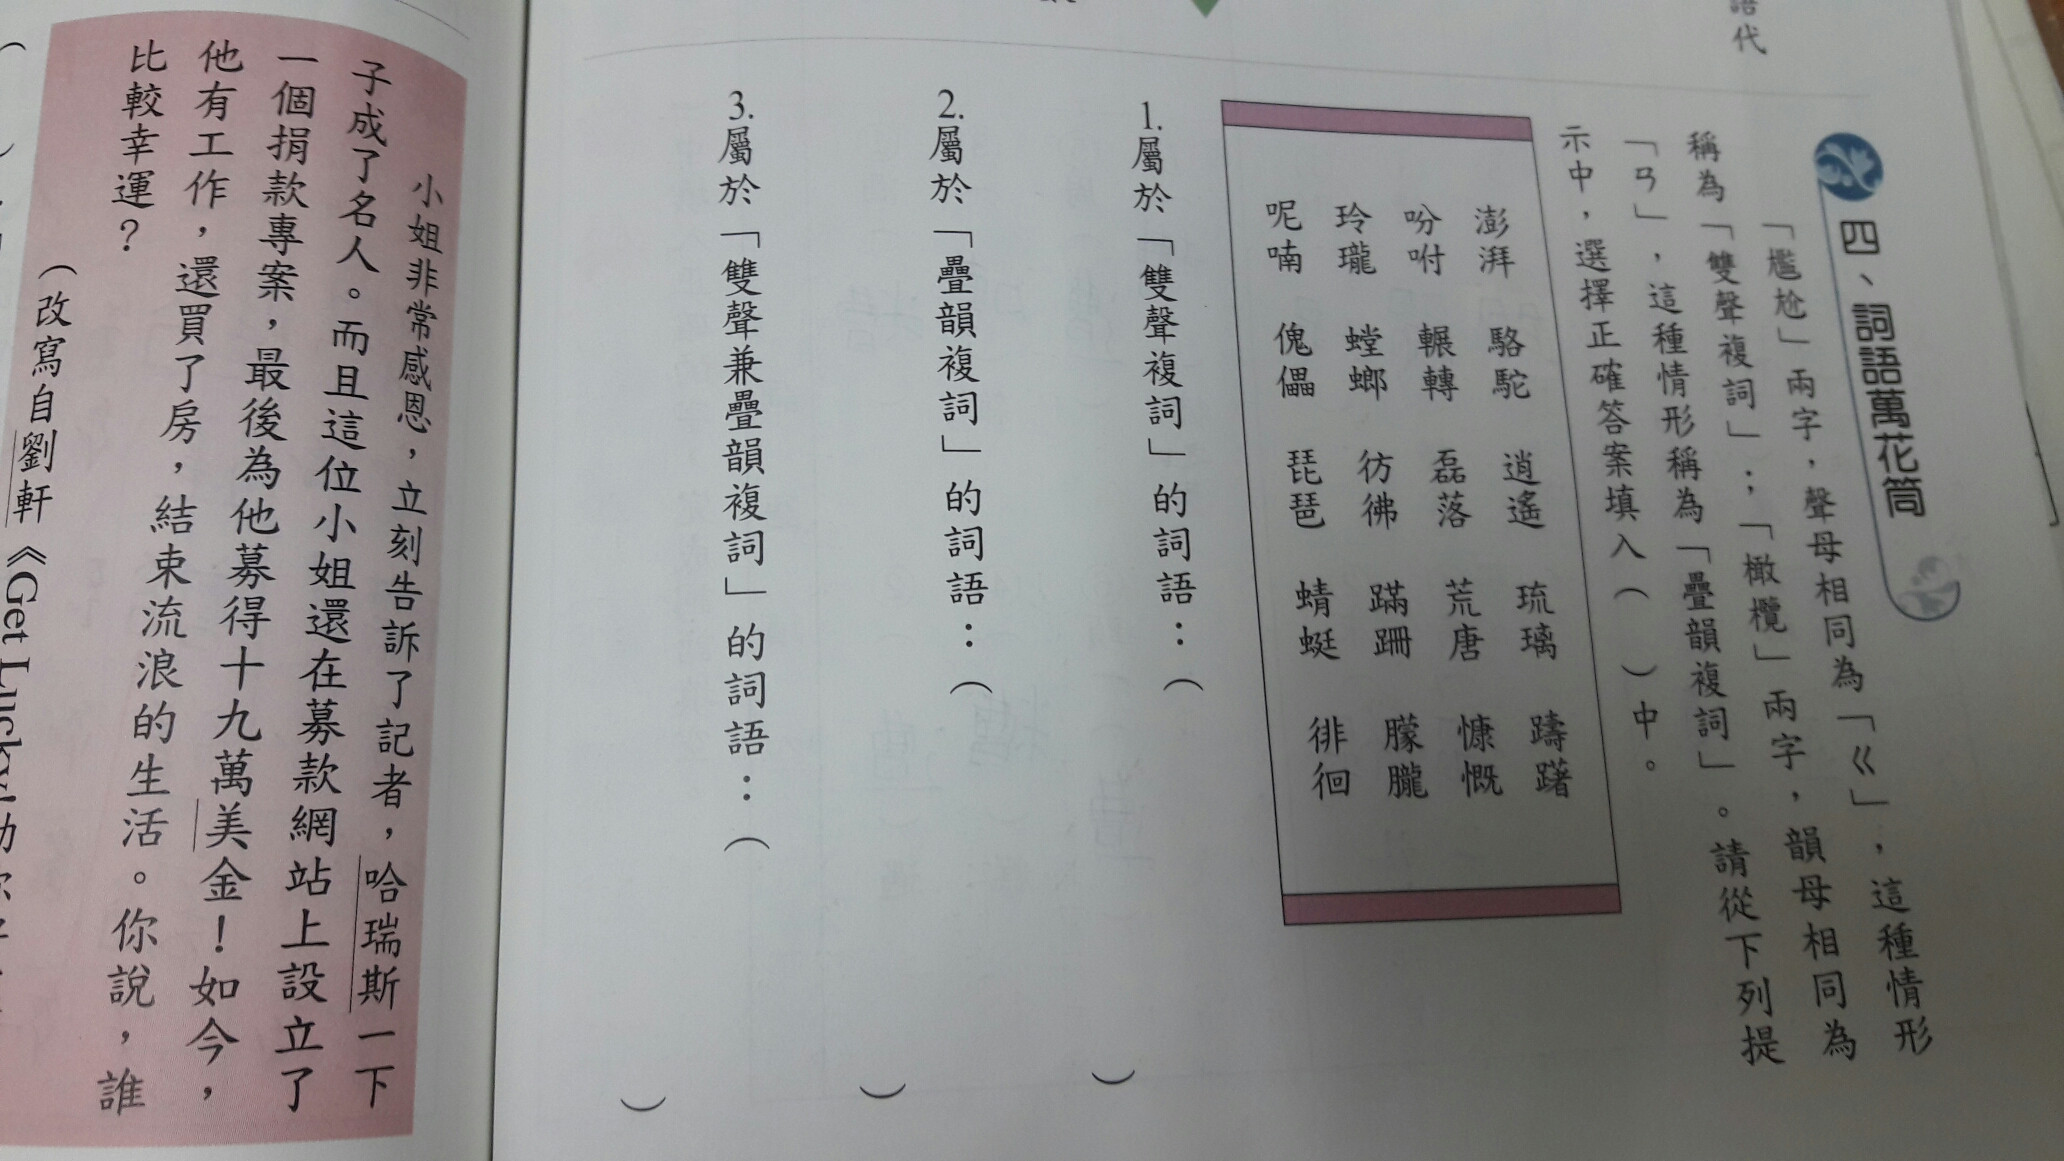 語代
四、詞語萬花筒
「尷尬」兩字，聲母相同為「ㄍ」，這種情形
稱為「雙聲複詞」；「橄欖」兩字，韻母相同為
「ㄢ」，這種情形稱為「疊韻複詞」。請從下列提
示中，選擇正確答案填入（　）中。
澎湃　駱駝　逍遙　琉璃　躊躇
吩咐　輾轉　磊落　荒唐　慷慨
玲瓏　螳螂　彷彿　蹣跚　朦朧
呢喃　傀儡　琵琶　蜻蜓　徘徊
1.屬於「雙聲複詞」的詞語：（　）
2.屬於「疊韻複詞」的詞語：（　）
3.屬於「雙聲兼疊韻複詞」的詞語：（　）
小姐非常感恩，立刻告訴了記者，哈瑞斯一下
子成了名人。而且這位小姐還在募款網站上設立了
一個捐款專案，最後為他募得十九萬美金！如今，
他有工作，還買了房，結束流浪的生活。你說，誰
比較幸運？
（改寫自劉軒《Get Lucky!助你好